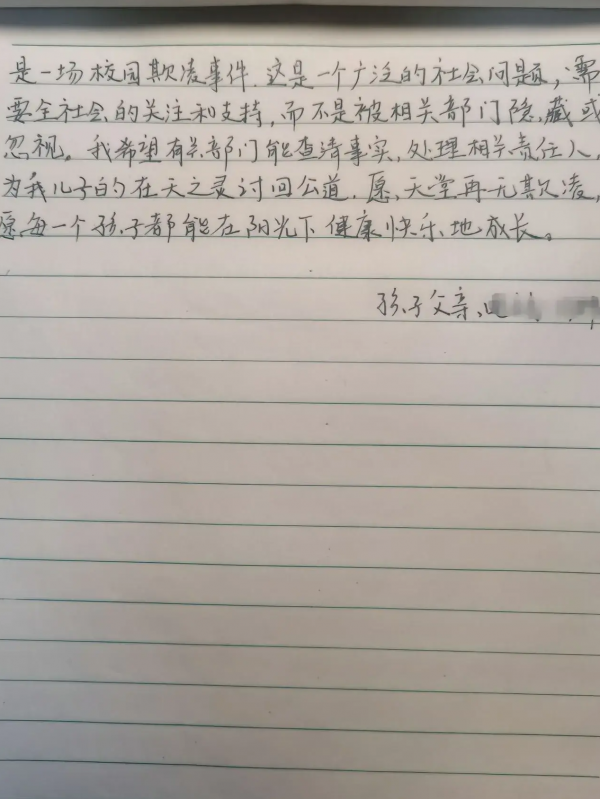 是一场校园欺凌事件.这是一个广泛的社会问题,需
要全社会的关注和支持,而不是被相关部门隐藏或
忽视。我希望有关部门能查清事实,处理相关责任人,
为我儿子的在天之灵讨回公道.愿,天堂再无欺凌,
愿每一个孩子都能在阳光下健康快乐地成长。
孩子父亲